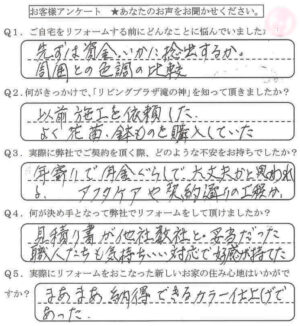 お客様アンケート ★あなたのお声をお聞かせください。
Q1. ご自宅をリフォームする前にどんなことに悩んでいましたか
先ずは資金.いかに捻出するか。
周囲との色調の比較
Q2.何がきっかけで、「リビングプラザ滝の神」を知って頂きましたか？
以前施工を依頼した.
よく花苗.鉢ものを購入していた
Q3. 実際に弊社でご契約を頂く際、どのような不安をお持ちでしたか？
年寄りで資金ぐらしで.大丈夫かと思われ
アフタケアや契約通りの工程か.
Q4. 何が決め手となって弊社でリフォームをして頂けましたか？
見積り書が他社数社と.妥当だった
職人たちも気持ちいい対応で好感が持てた
Q5. 実際にリフォームをおこなった新しいお家の住み心地はいかがで
すか？
まあまあ.納得できるカラー仕上げで
あった.